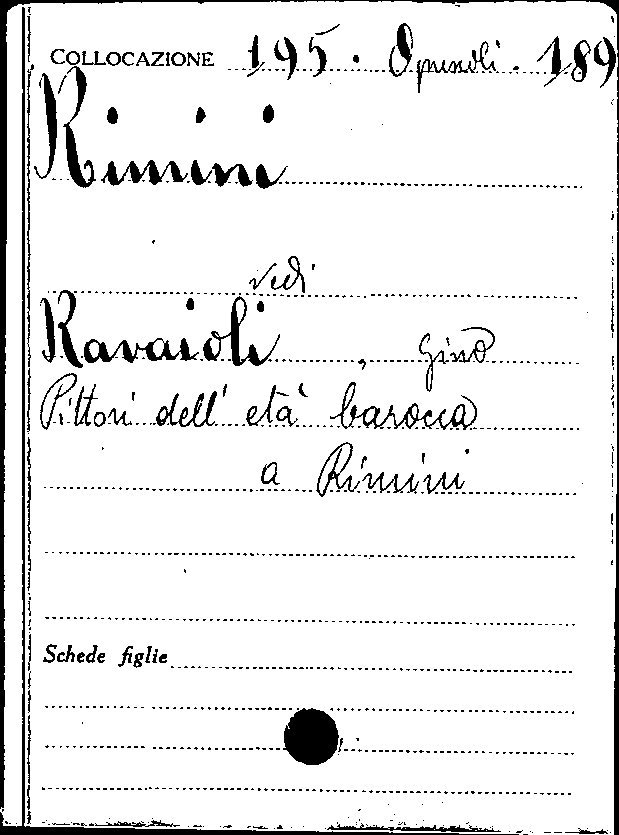 COLLOCAZIONE 195. Opuscoli. 189
Rimini
vedi
Ravaioli, Gino
Pittori dell'età barocca
a Rimini
Schede figlie